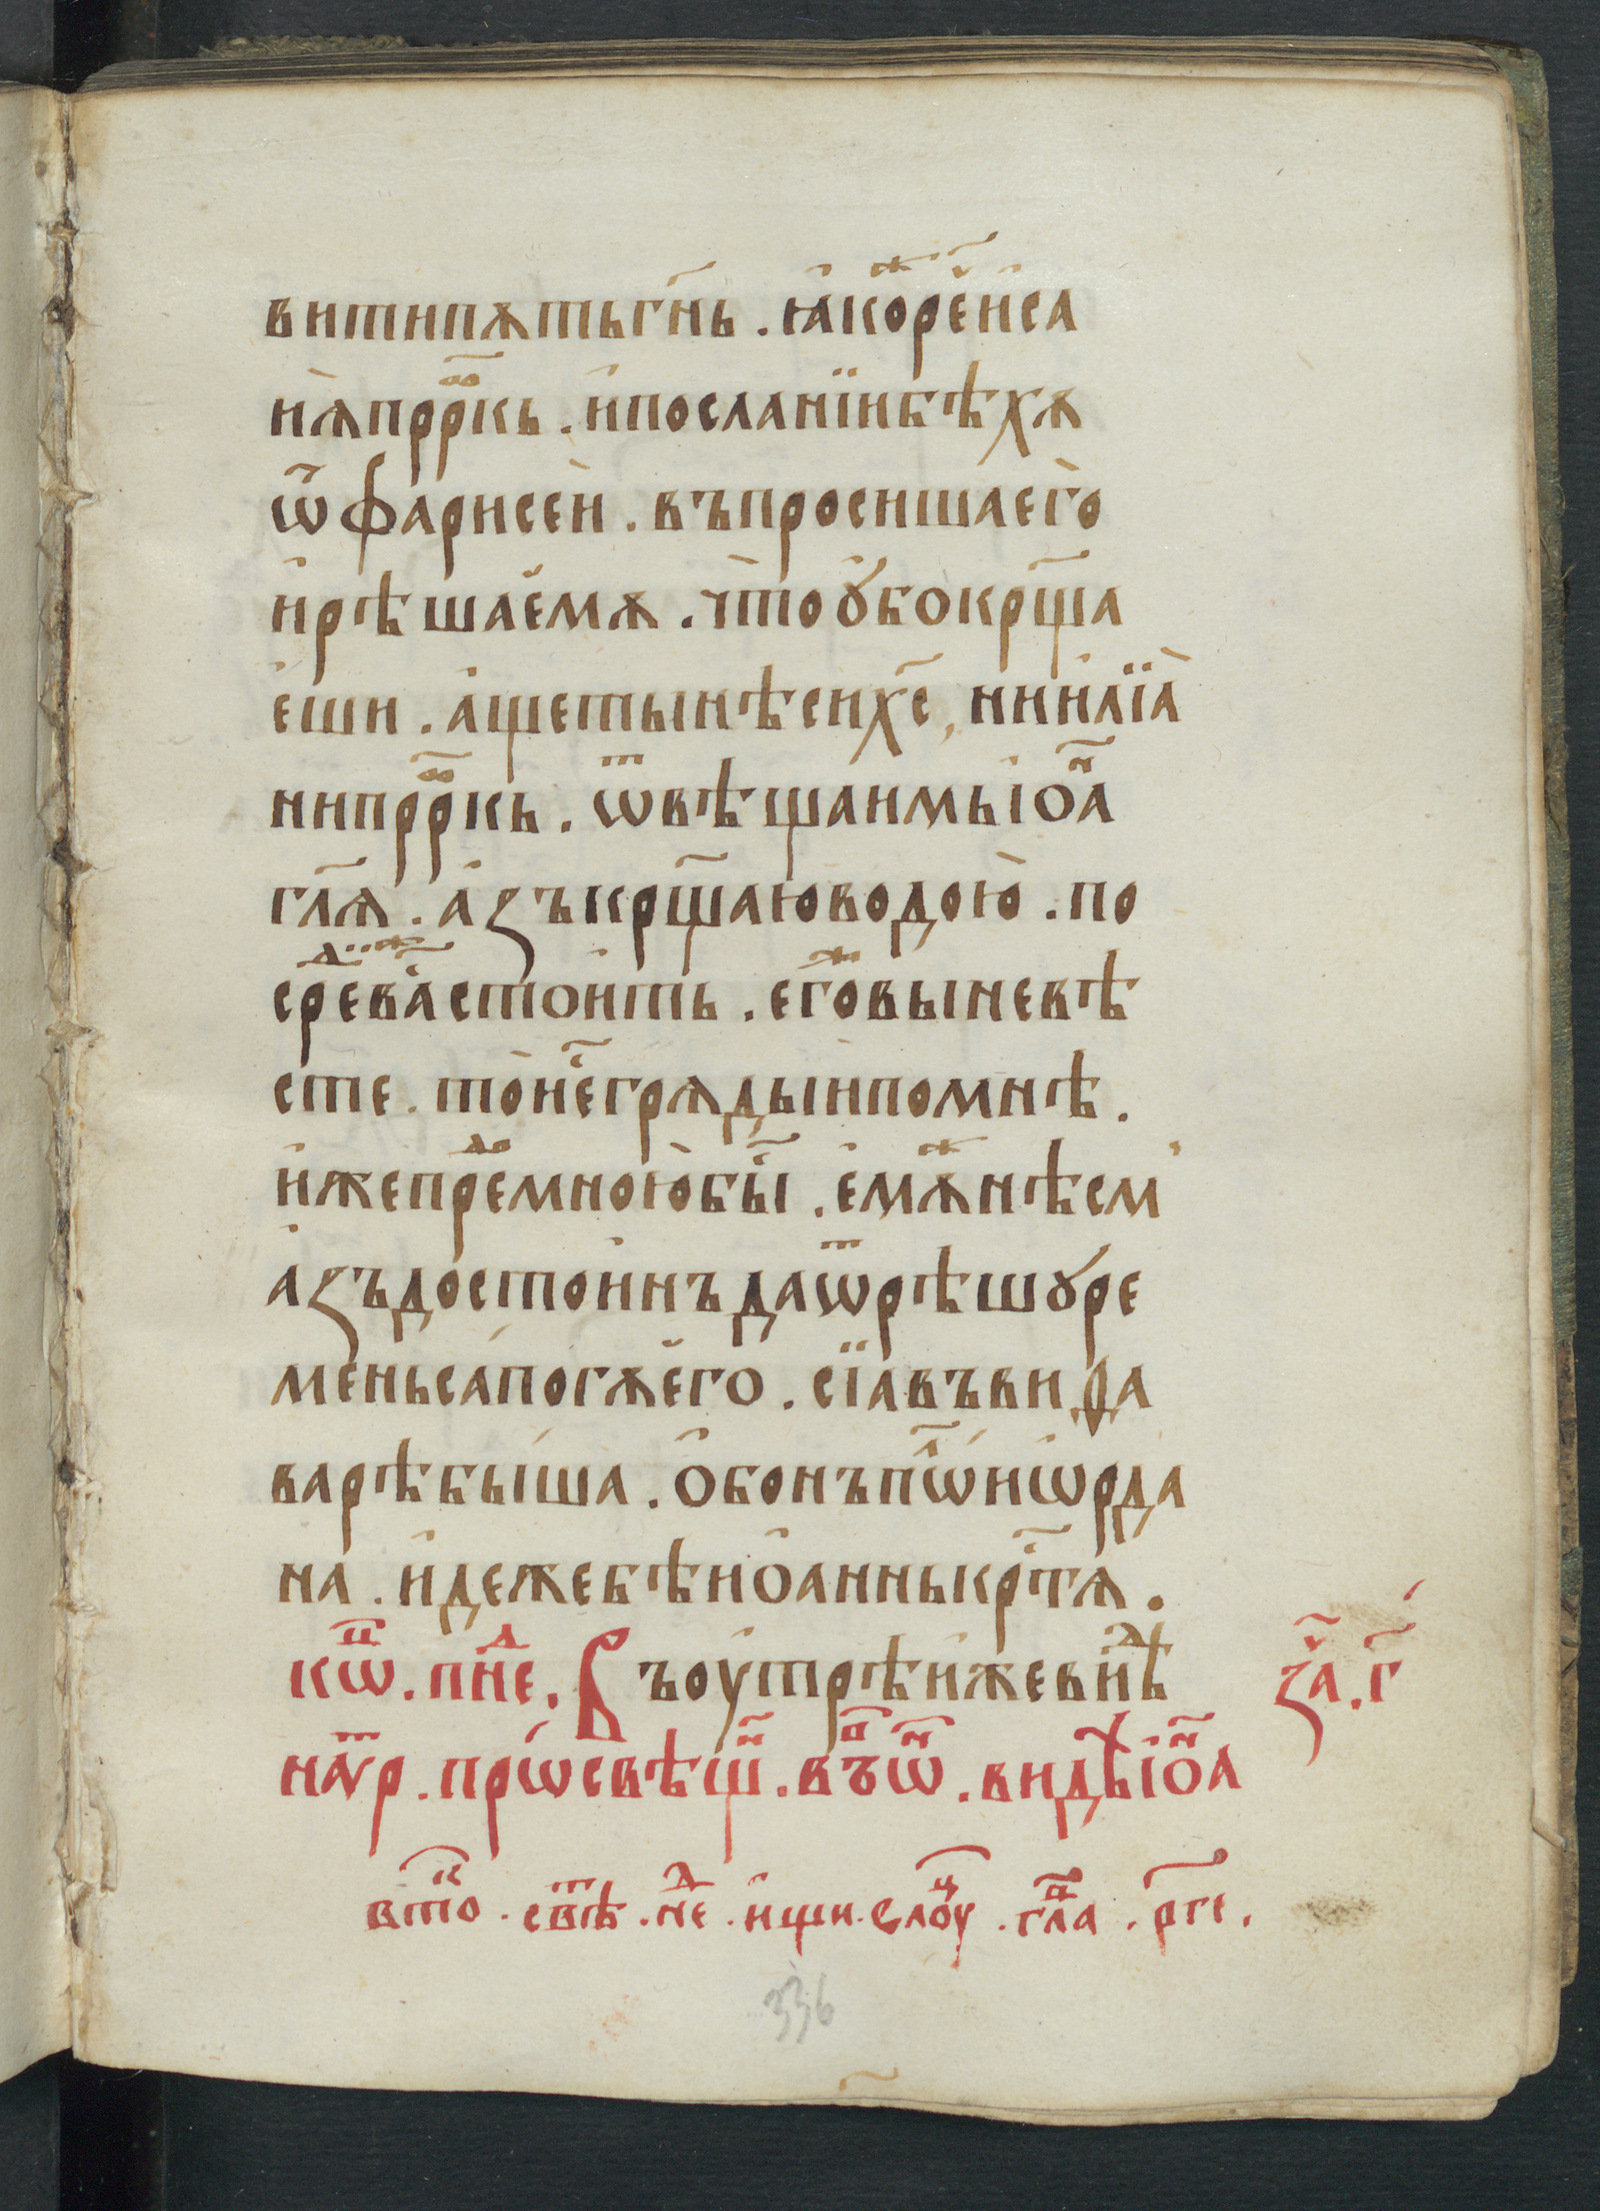 витипѫтьгн҃ь . ꙗ҆коⷤре҃и҆са
ꙗ҆̀прⷪ҇ркь . и҆посланїибѣхѫ
ѿфарисе́и . въпросишаего̀
и҆рѣшае҆мѫ . что̀ꙋ҆бокрщ҃а
е҆ши . а҆щетынѣсих҃с , нии҆лїа̀
нипрⷪ҇ркь . ѿвѣщаимьі҆ѡⷩ҇а
гл҃ѧ . а҆ꙁъкрщ҃аюводою̀ . по
среⷣваⷤстои҆ть . егоⷤвыневѣ
сте . то̀не҃грѧдыи҆помнѣ .
и҆жепреⷣмною̀бы҃ . е҆мѫⷤнѣсм
а҆ꙁъдостоинъдаѿрѣшꙋре
меньсапогѫе҆го . сїавъвиѳа
варѣбы́ша . ѻ҆бонъпⷧ҇ѡ́нїѡрда
на . и҆дежебѣиѻ҆аннькрⷭ҇тѧ .
кѡⷰ҇ . пнеⷣ . Въоу҆трѣи҆жевнⷣѣ
наѵⷮр . прѡ́свѣщⷩ҇ . въⷪ҇ѡⷩ҇ . видⷯѣі҆ѡⷩ҇а
ꙁа҃ . г҃
втоⷦ҇ . свⷮѣ . неⷣ . и҆щи . слоуⷤ . глⷡ҇а . р҃гі .
336